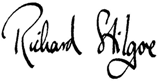 Richard Stilgoe